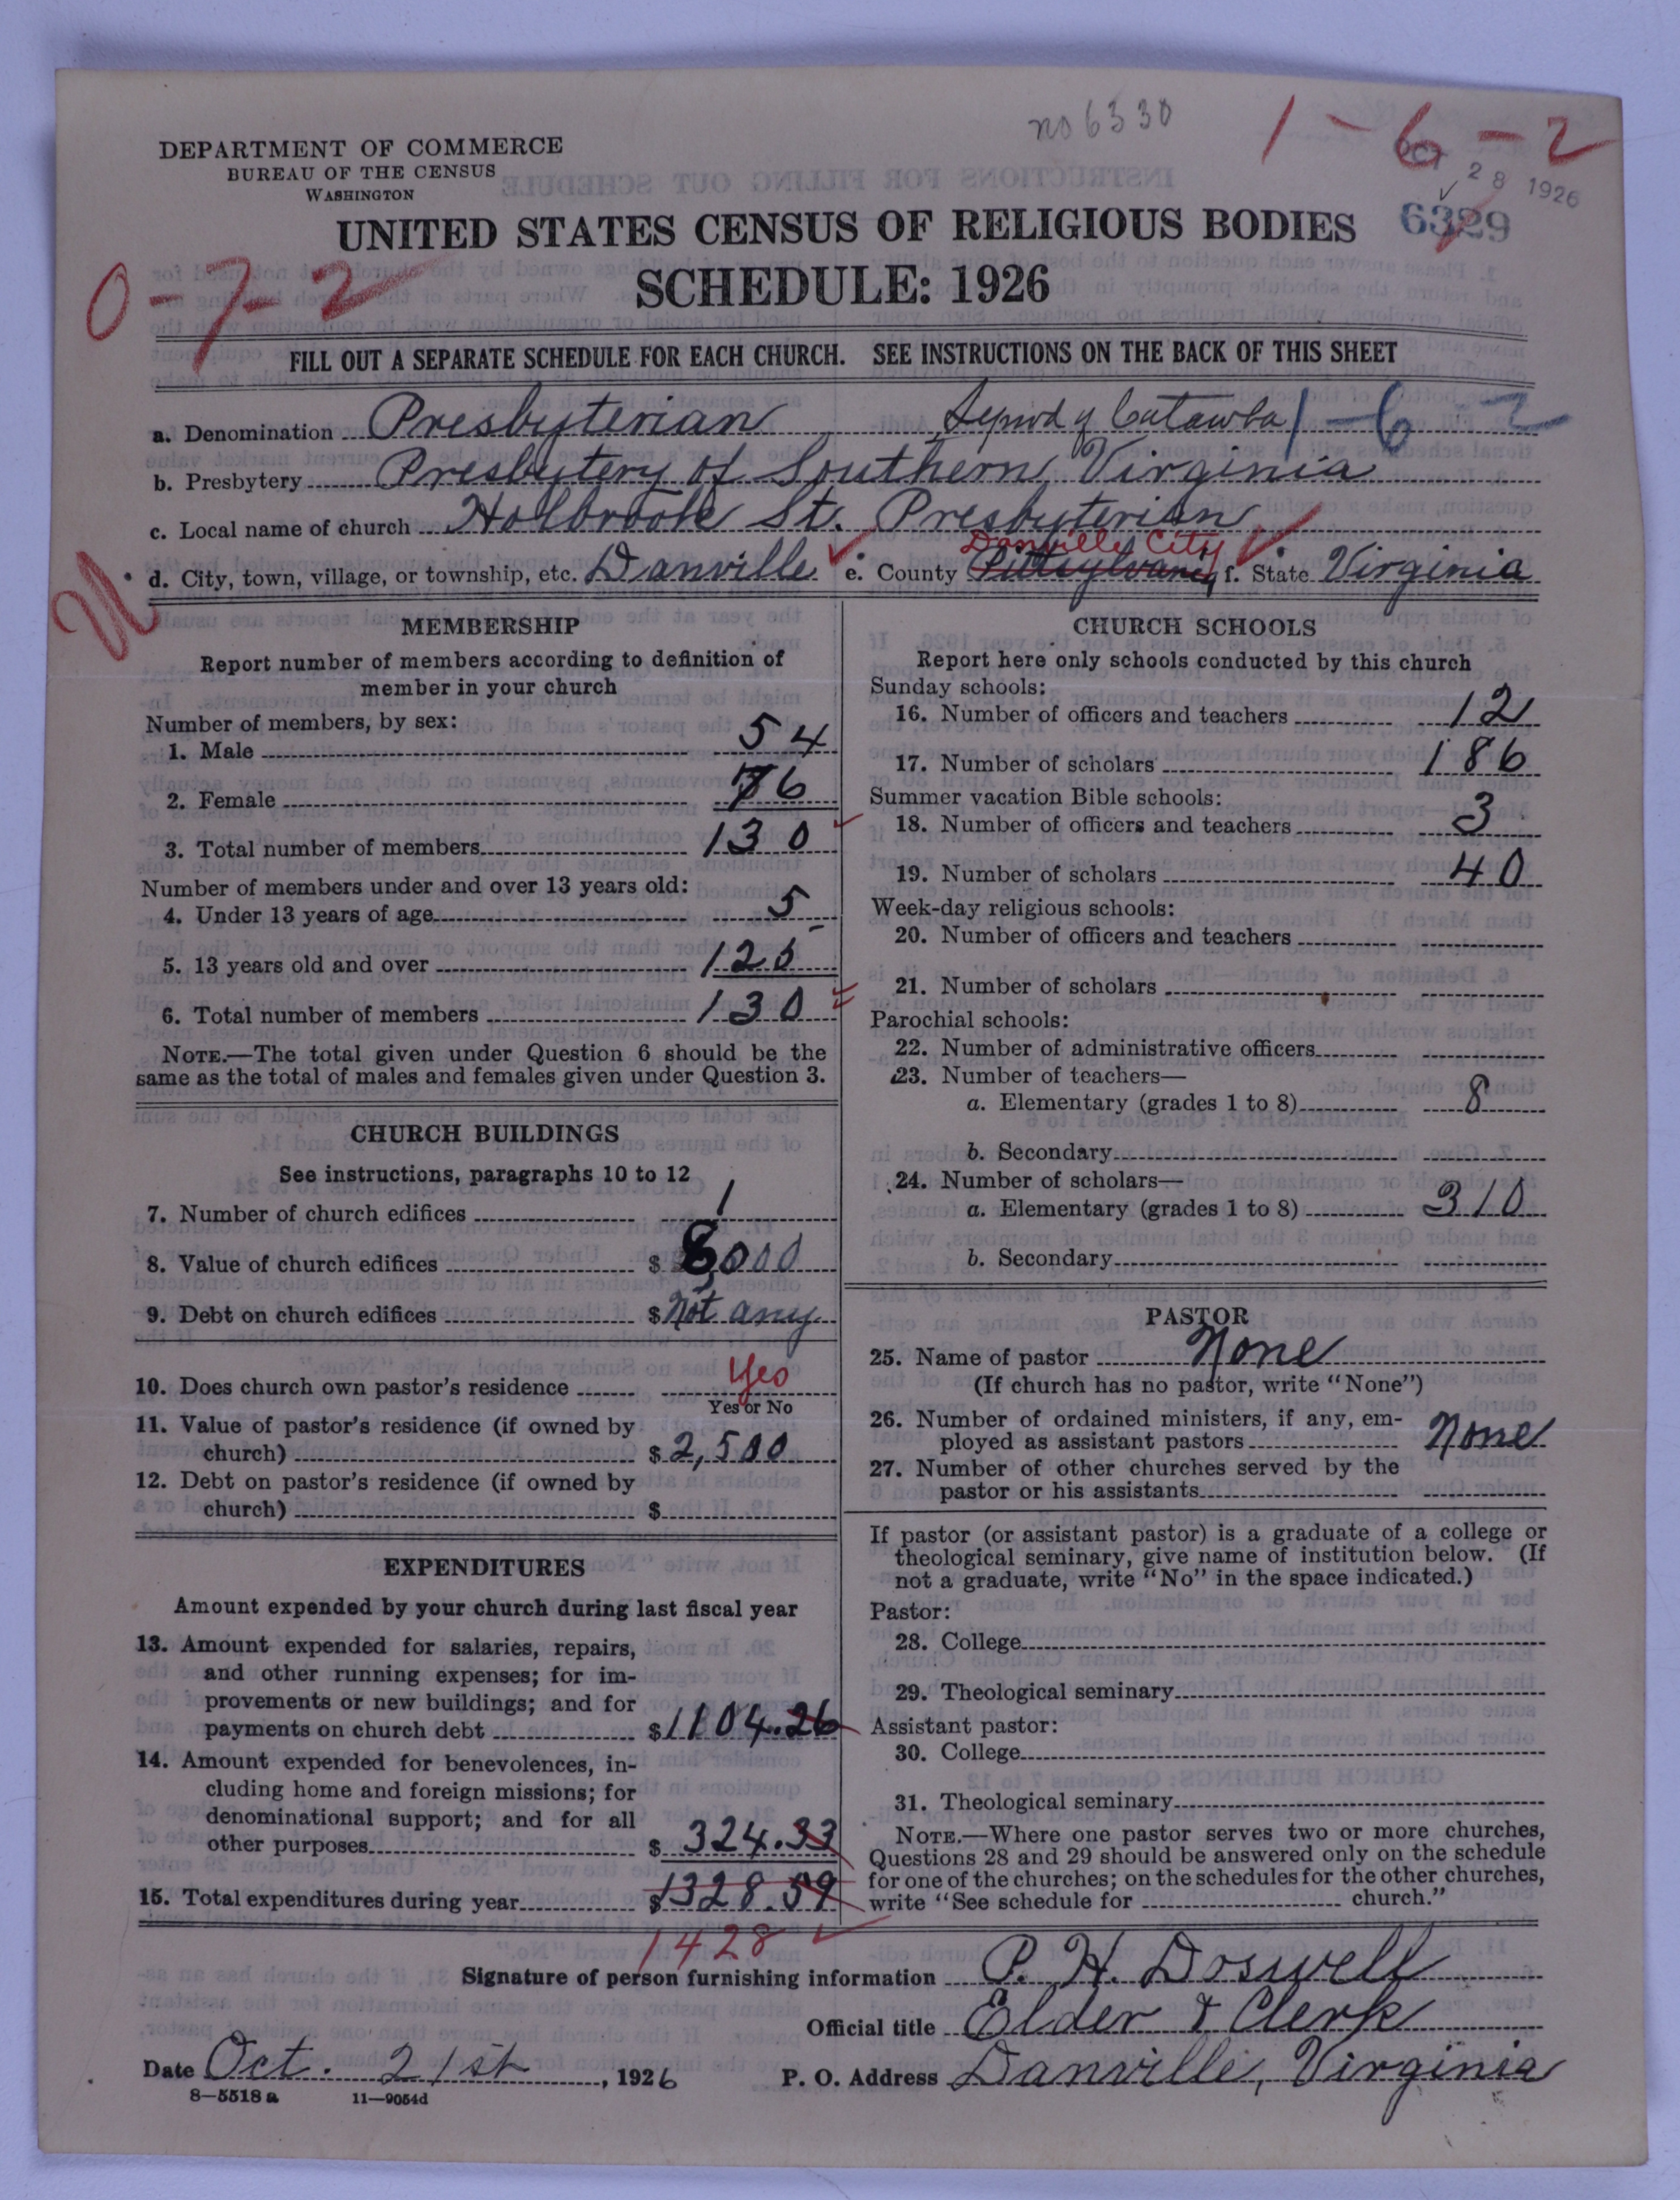 no 6330
1-6-2
DEPARTMENT OF COMMERCE
BUREAU OF THE CENSUS
WASHINGTON
OCT 28 1926
6329
UNITED STATES CENSUS OF RELIGIOUS BODIES
SCHEDULE: 1926
0-7-2
FILL OUT A SEPARATE SCHEDULE FOR EACH CHURCH. SEE INSTRUCTIONS ON THE BACK OF THIS SHEET
a. Denomination Presbyterian Synod of Catawba 1-6-2
b. Presbytery Presbytery of Southern Virginia
c. Local name of church Holbrook St. Presbyterian
Danville City
d. City, town, village, or township, etc. Danville e. County Pittsylvania f. State Virginia
MEMBERSHIP
Report number of members according to definition of
member in your church
Number of members, by sex:
1. Male 54
2. Female 76
3. Total number of members 130
Number of members under and over 13 years old:
4. Under 13 years of age 5
5. 13 years old and over 125
6. Total number of members 130
NOTE.—The total given under Question 6 should be the
same as the total of males and females given under Question 3.
CHURCH BUILDINGS
See instructions, paragraphs 10 to 12
7. Number of church edifices 1
8. Value of church edifices $ 8000
9. Debt on church edifices $ Not any
10. Does church own pastor's residence Yes
Yes or No
11. Value of pastor's residence (if owned by
church) $ 2,500
12. Debt on pastor's residence (if owned by
church) $
EXPENDITURES
Amount expended by your church during last fiscal year
13. Amount expended for salaries, repairs,
and other running expenses; for im-
provements or new buildings; and for
payments on church debt $ 1104.26
14. Amount expended for benevolences, in-
cluding home and foreign missions; for
denominational support; and for all
other purposes $ 324.33
15. Total expenditures during year $ 1328.59
1428
CHURCH SCHOOLS
Report here only schools conducted by this church
Sunday schools:
16. Number of officers and teachers 12
17. Number of scholars 186
Summer vacation Bible schools:
18. Number of officers and teachers 3
19. Number of scholars 40
Week-day religious schools:
20. Number of officers and teachers
21. Number of scholars
Parochial schools:
22. Number of administrative officers
23. Number of teachers—
a. Elementary (grades 1 to 8) 8
b. Secondary
24. Number of scholars—
a. Elementary (grades 1 to 8) 310
b. Secondary
PASTOR
25. Name of pastor None
(If church has no pastor, write "None")
26. Number of ordained ministers, if any, em-
ployed as assistant pastors None
27. Number of other churches served by the
pastor or his assistants
If pastor (or assistant pastor) is a graduate of a college or
theological seminary, give name of institution below. (If
not a graduate, write "No" in the space indicated.)
Pastor:
28. College
29. Theological seminary
Assistant pastor:
30. College
31. Theological seminary
NOTE.—Where one pastor serves two or more churches,
Questions 28 and 29 should be answered only on the schedule
for one of the churches; on the schedules for the other churches,
write "See schedule for church."
Signature of person furnishing information P. H. Doswell
Official title Elder & Clerk
Date Oct. 21st, 1926 P. O. Address Danville, Virginia
8—5518 a 11—9054d